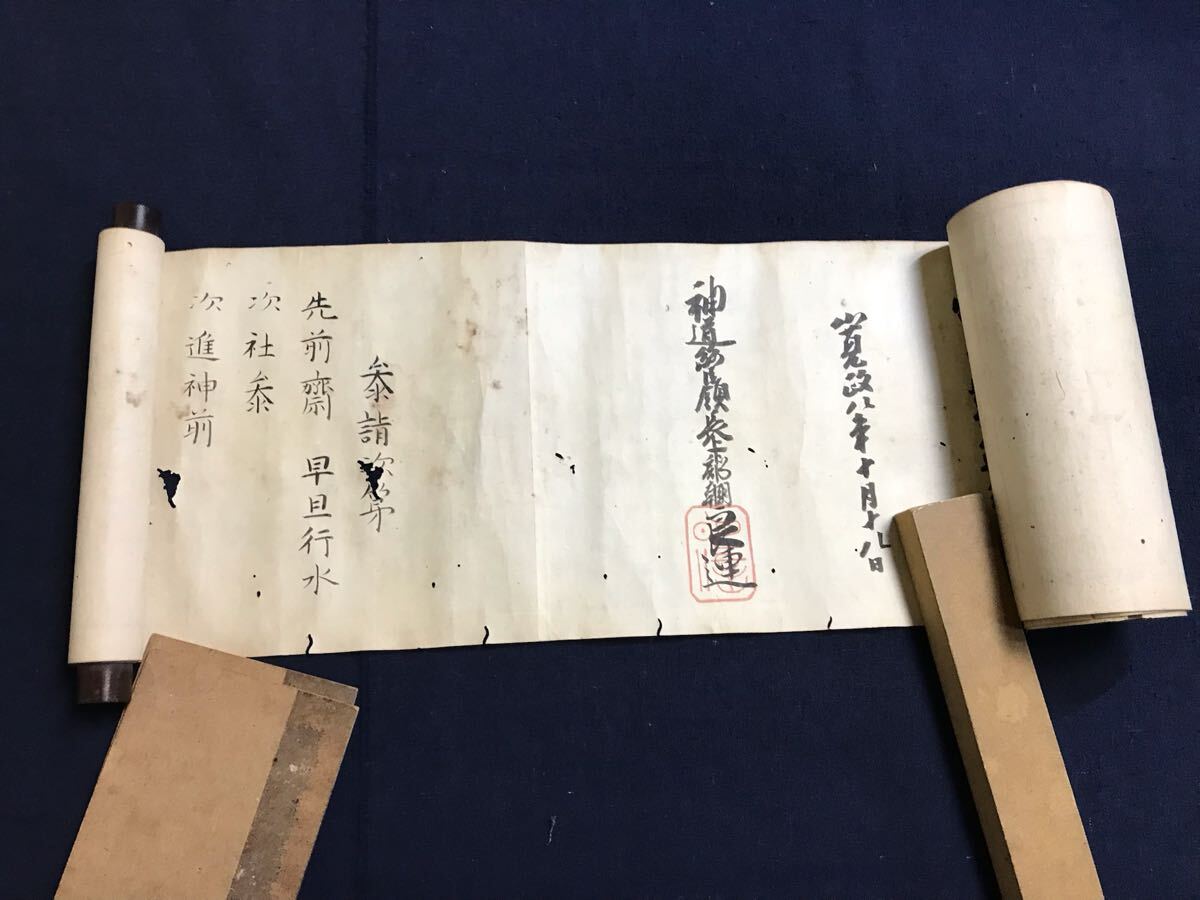 寛政八年十月十八日
神道管領長上卜部朝臣良連
参詣次第
先前齋 早旦行水
次社参
次進神前